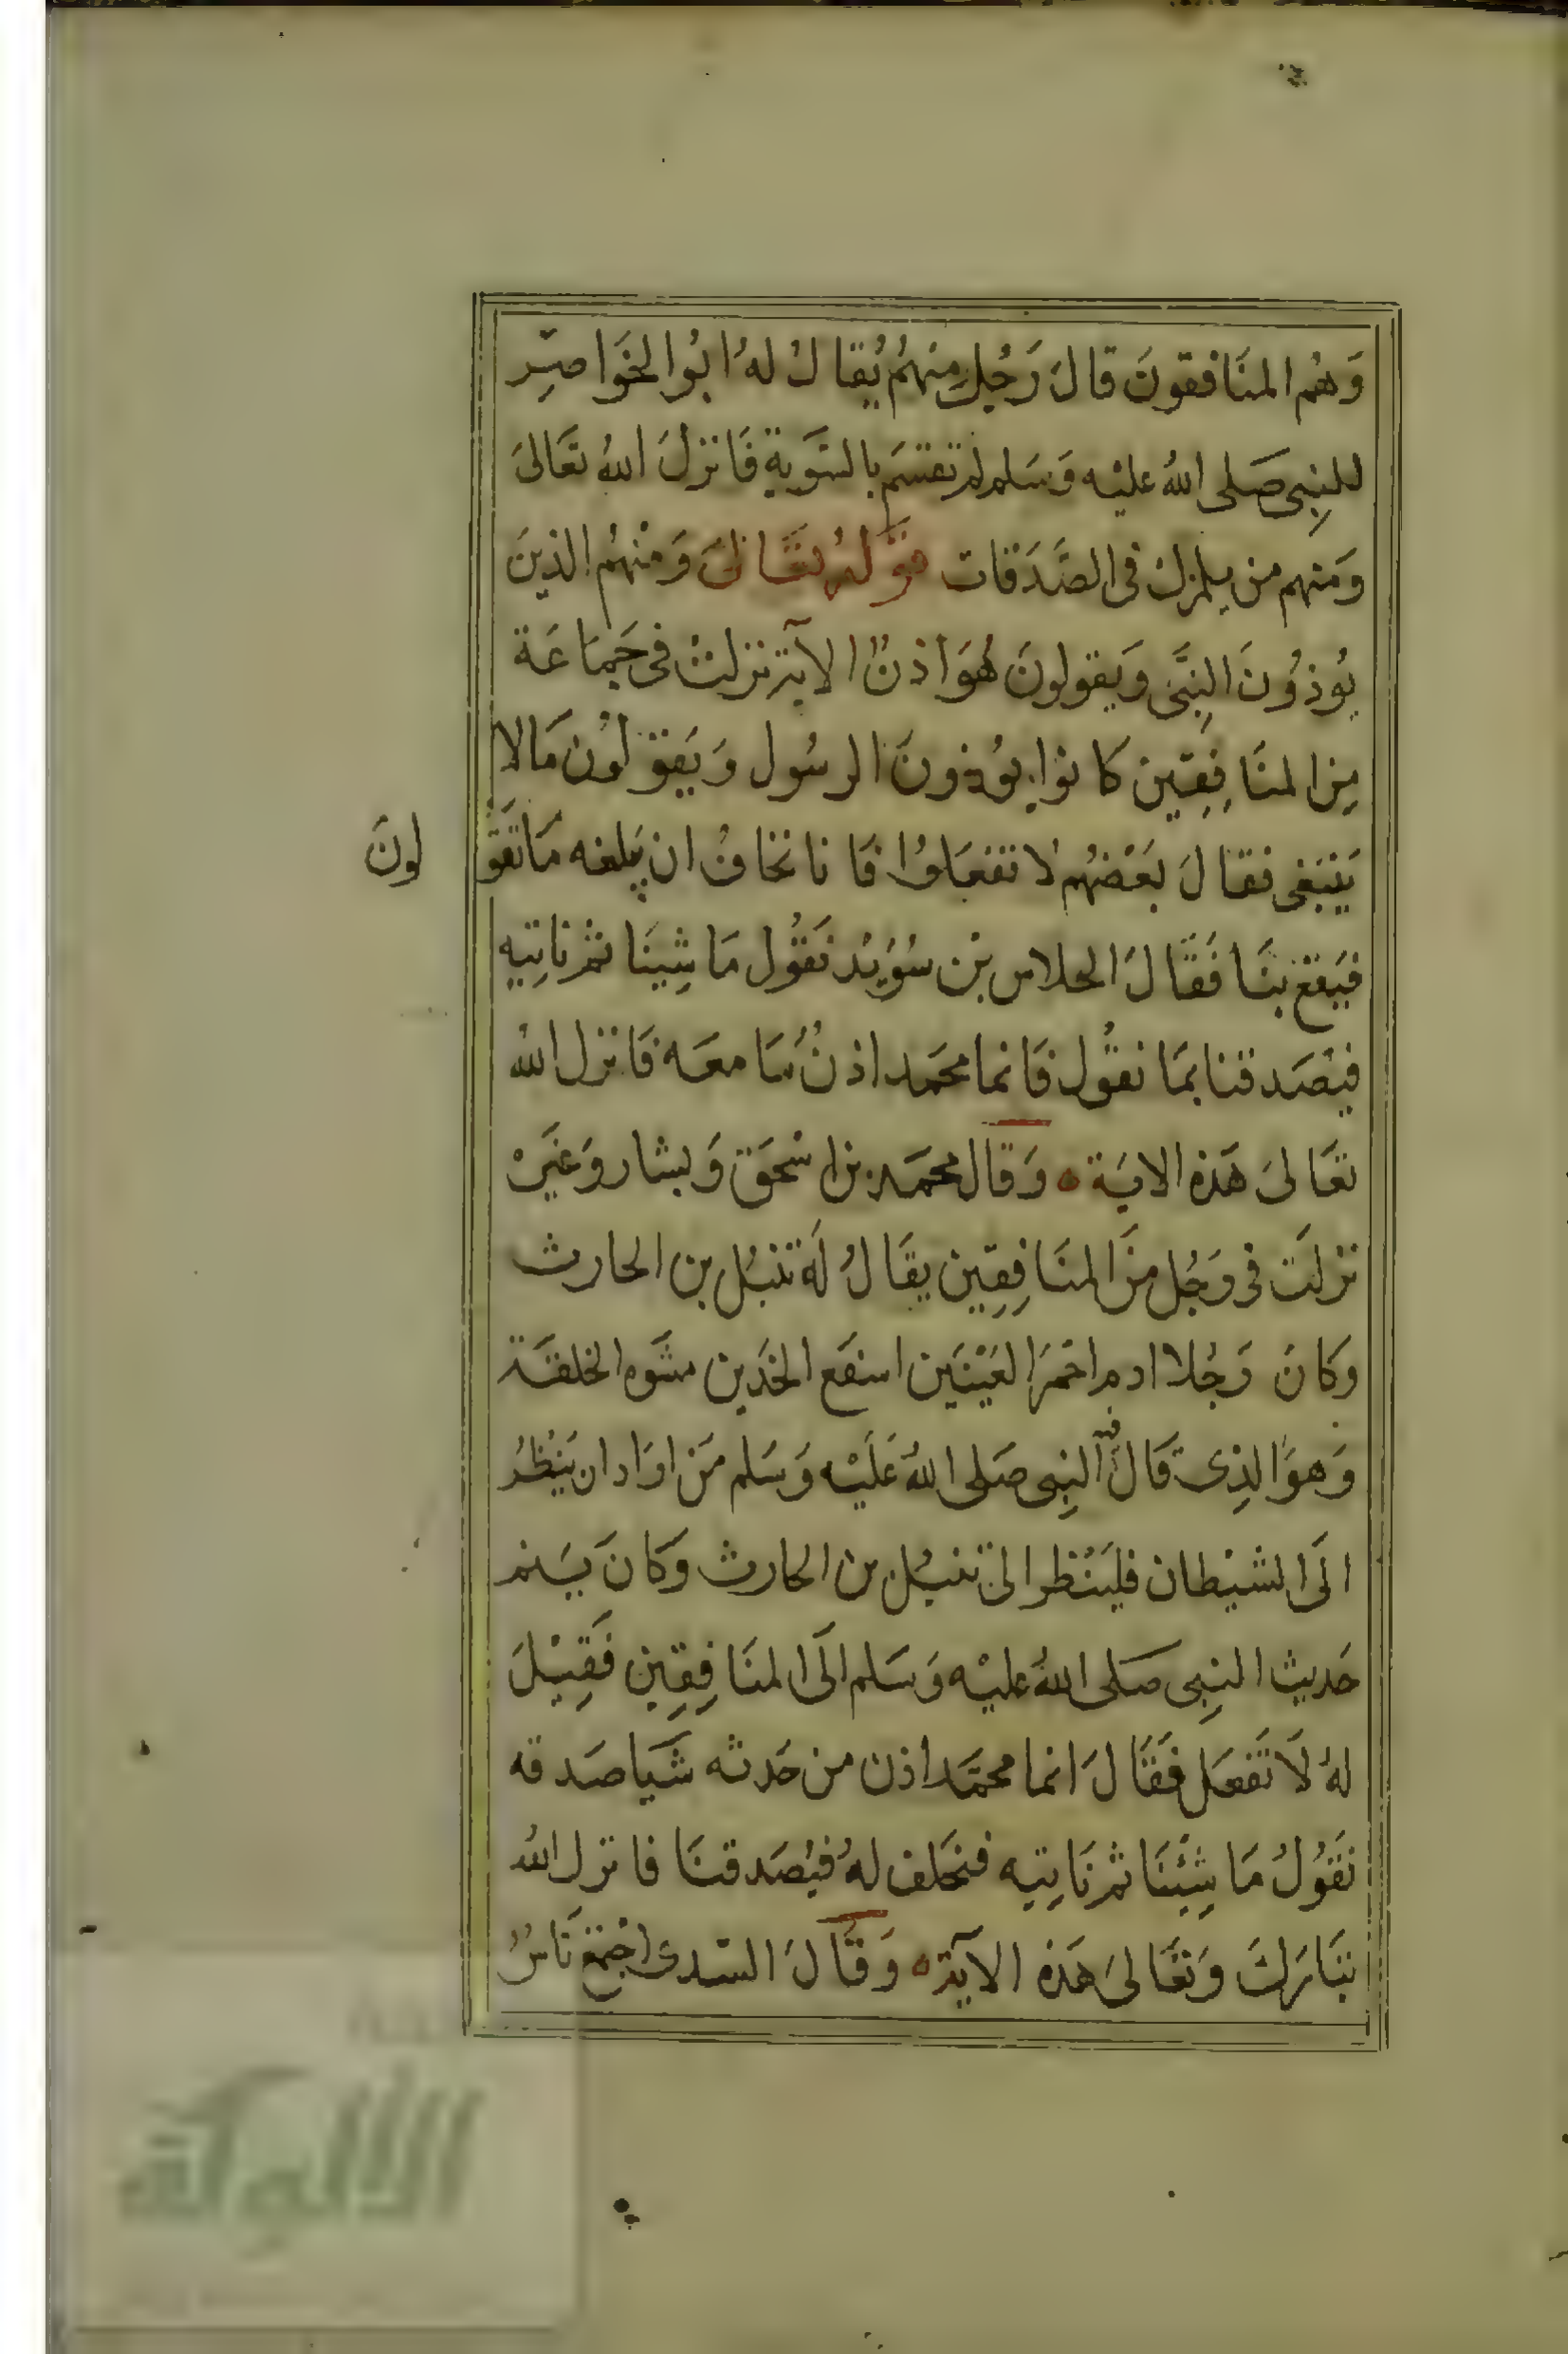 وَهُم المنَافقونَ قالَ رَجُل مِنهُم يُقالُ لهُ ابُوا الخَواصِر
للنِبِى صَلى اللهُ عليْه وَسَلم لم تقسَم بالسَّوية فَانزلَ اللهُ تعَالىَ
وَمنهم من يلمزك فى الصَّدَقات قوَلهُ تعَالىَ وَمنْهُم الذينَ
يُوذُونَ النِبَّى وَيقولونَ هُوَ اذنٌ الآية نزلتْ فى جَماعَة
مِن المنَافِقِين كانوا يوُذونَ الرسُول وَيَقولوُن مَالا
يَنبَغى فقالَ بَعْضهُم لا تفعَلوُا فَانا نخافُ ان يَبلغه مَا تَقَو
لونَ
فيَقع بنَا فَقَالَ الحلاس بْن سُوَيْد نَقُول مَا شِينَا ثمْ ناتِيه
فيْصَدقنا بمَا نقُول فَانما محَمد اذنُ سَامعَه فَانزل اللهُ
تعَالىَ هَذه الايَة ه وَقال محمَد بن اسْحَق وَيشار وَغيَرْ
نزلَت فى رَجُل منَ المنَافِقِين يقَالُ لَهُ نَنبُل بن الحارث
وَكانَ رَجُلا ادم احْمرَ العَيْنَين اسفَع الخدَين مشَوه الخلقَة
وَهوَ الذِى قَالَ فيه النِبِى صَلى اللهُ عَلَيْه وَسَلم مَن ارَاد ان يَنْظُرُ
الَى الشيْطان فليَنْظر الىَ نَنبُل بن الحارث وَكانَ يَنم
حَديث النِبِى صَلى اللهُ عليْه وَسَلم الَى المنَافِقِين فَقِيْلَ
لهُ لَا تَفعَل فَقَالَ انما محمَّد اذن من حَدثه شَيَا صَدقه
نقوُلُ مَا شِئنَا ثم نَاتِيه فنحَلف لهُ فيُصَدقنَا فانزل اللهُ
تبَارَكَ وَتعَالىَ هَذهْ الآية ه وَقَالَ السّدى اجْتمَع نَاسُ